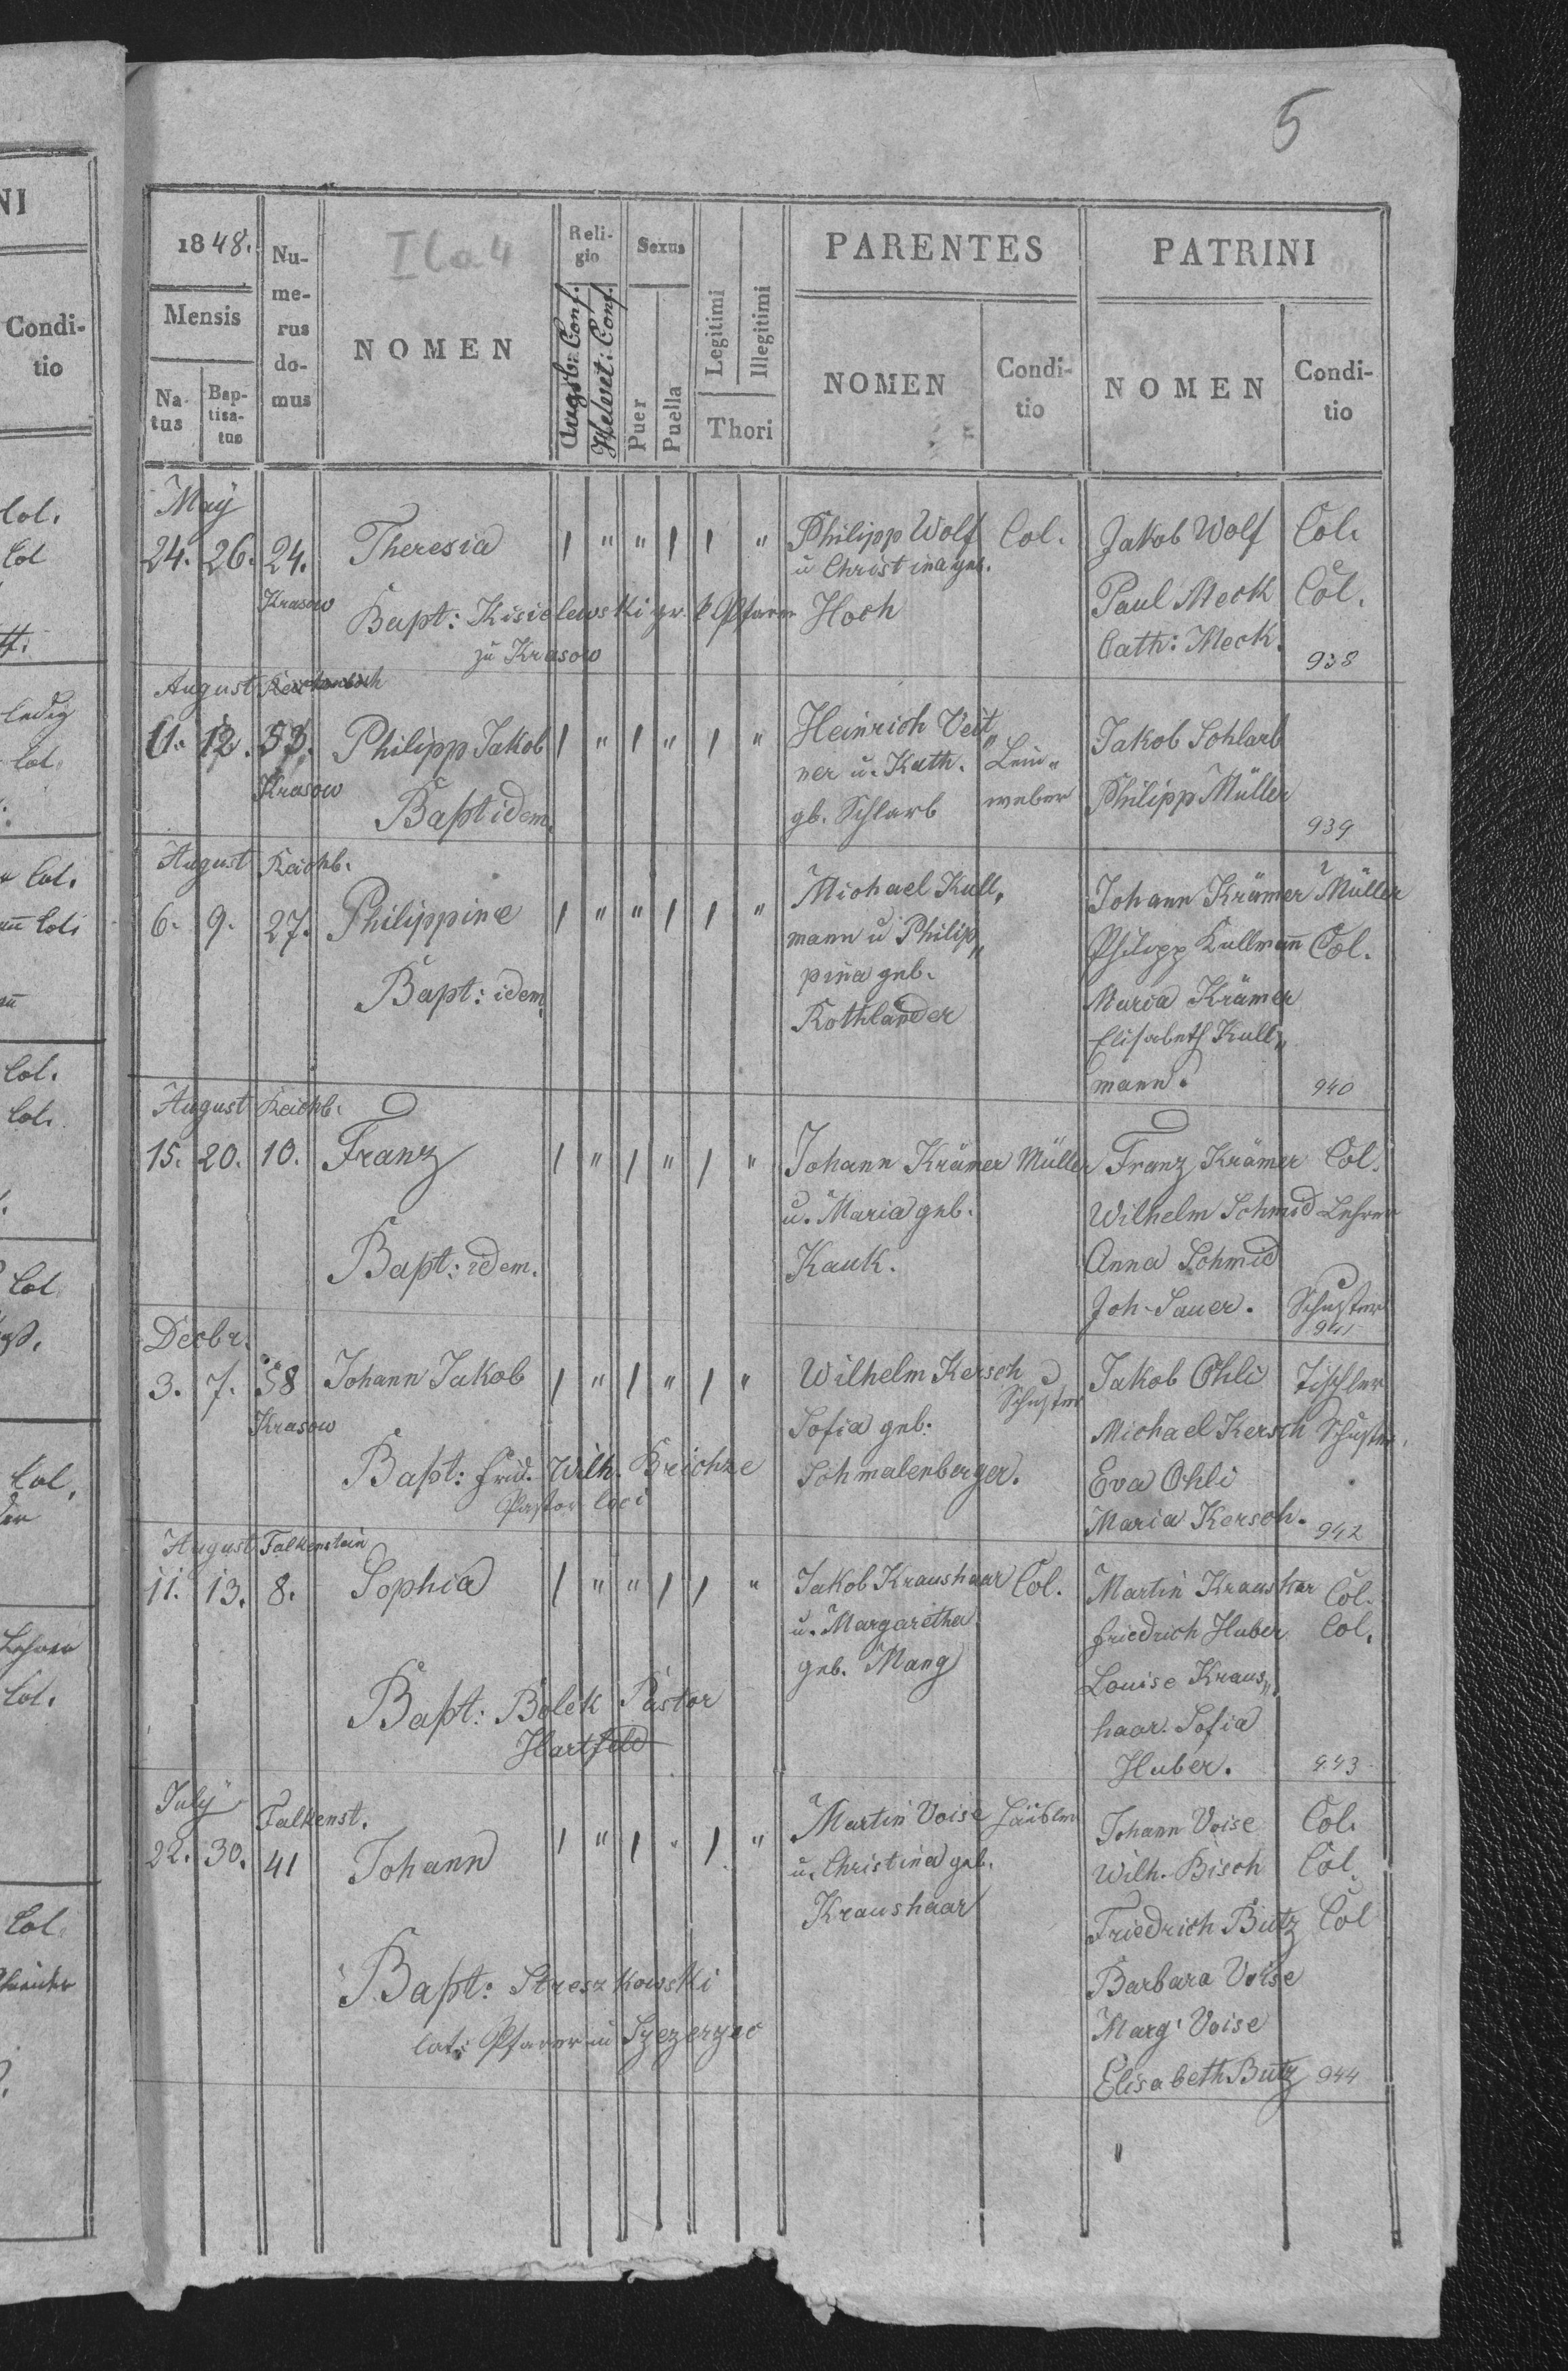 5
NI
Condi-
tio
1848.
Mensis
Na-
tus
Bap-
tisa-
tus
Nu-
me-
rus
do-
mus
NOMEN
Reli-
gio
Augsb: Conf.
Helvet: Conf.
Sexus
Puer
Puella
Legitimi
Illegitimi
Thori
PARENTES
NOMEN
Condi-
tio
PATRINI
NOMEN
Condi-
tio
May
24. 26. 24. Theresia 1 " " 1 1 " Philipp Wolf Col. Jakob Wolf Col.
u Christina geb.
Krasow Hoch Paul Meck Col.
Bapt: Kisielewski gr. k Pfarrer
zu Krasow Cath: Meck. 938
August
11. 12. 53. Philipp Jakob 1 " 1 " 1 " Heinrich Veit„ Jakob Schlarb
ner u. Kath. Lein„
Krasow gb. Schlarb weber Philipp Müller
Bapt idem. 939
August Reichb.
6. 9. 27. Philippine 1 " " 1 1 " Michael Kull„ Johann Krämer Müller
mann u Philip„ Philipp Kullmann Col.
pina geb. Maria Krämer
Bapt: idem Rothländer Elisabeth Kull„
mann. 940
August Reichb.
15. 20. 10. Franz 1 " 1 " 1 " Johann Krämer Müller Franz Krämer Col.
u. Maria geb. Wilhelm Schmid Lehrer
Bapt: idem. Kauk. Anna Schmid
Joh. Sauer. Schuster
941
Decbr.
3. 7. 58 Johann Jakob 1 " 1 " 1 " Wilhelm Kersch Schuster Jakob Ohli Tischler
Krasow Sofia geb. Michael Kersch Schuster
Bapt: Frid. Wilh. Reichze Schmalenberger. Eva Ohli
Pastor loci Maria Kersch. 942
August Falkenstein
11. 13. 8. Sophia 1 " " 1 1 " Jakob Kraushaar Col. Martin Kraushar Col.
u. Margaretha Friedrich Huber Col.
geb. Mang Louise Kraus„
Bapt: Bolek Pastor haar. Sofia
Hartfeld Huber. 943
July Falkenst.
22. 30. 41 Johann 1 " 1 " 1 " Martin Voise Johann Voise Col.
u. Christina geb. Wilh. Bisch Col.
Kraushaar Friedrich Butz Col
Bapt: Streszkowski Barbara Voise
lat: Pfarrer in Marg. Voise
Elisabeth Butz 944